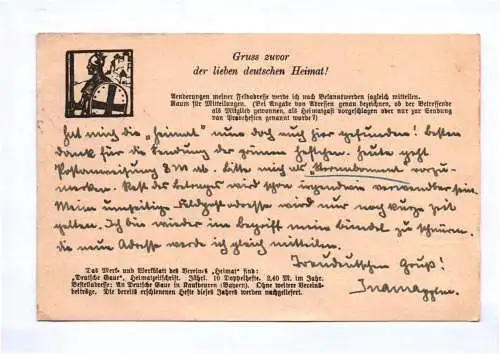 Gruss zuvor
der lieben deutschen Heimat!
Aenderungen meiner Feldadresse werde ich nach Bekanntwerden sogleich mitteilen.
Raum für Mitteilungen. (Bei Angabe von Adressen genau bezeichnen, ob der Betreffende
als Mitglied gewonnen, als Heimatgast vorgeschlagen oder nur zur Sendung
von Probeheften genannt wurde?)
hat mich die „Heimat" nun doch auch hier gefunden! besten
dank für die Sendung der grünen Heftchen. Heute geht
Postanweisung 8 M ab. bitte mich als zu
merken. Rest des betrags wird schon irgendwie verwendbar sein.
Meine umseitige Feldpostadresse wird nur noch kurze zeit
gelten. Ich bin wieder im begriff mein bündel zu schnüren.
die neue Adresse werde ich gleich mitteilen.
Treudeutschen Gruß!
Das Merk- und Werkblatt des Vereins „Heimat" sind:
„Deutsche Gaue", Heimatzeitschrift. Jährl. 10 Doppelhefte. 2,40 M. im Jahr.
Bestelladresse: An Deutsche Gaue in Kaufbeuren (Bayern). Ohne weitere Vereins-
beiträge. Die bereits erschienenen Hefte dieses Jahres werden nachgeliefert.